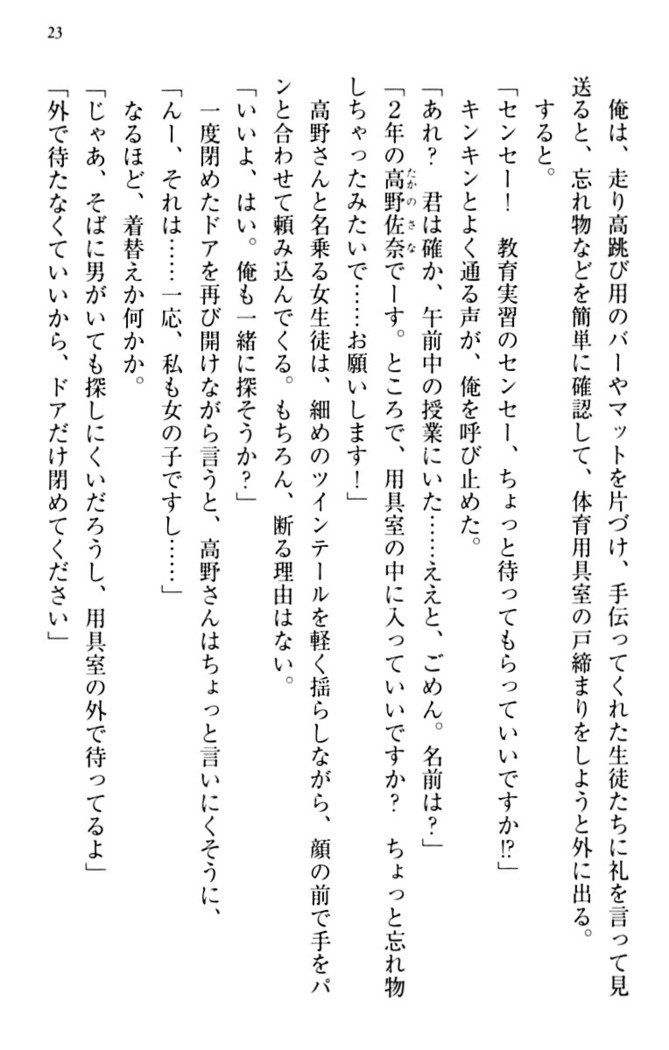 23
俺は、走り高跳び用のバーやマットを片づけ、手伝ってくれた生徒たちに礼を言って見
送ると、忘れ物などを簡単に確認して、体育用具室の戸締まりをしようと外に出る。
すると。
「センセー！　教育実習のセンセー、ちょっと待ってもらっていいですか!?」
キンキンとよく通る声が、俺を呼び止めた。
「あれ？　君は確か、午前中の授業にいた……ええと、ごめん。名前は？」
「２年の高野佐奈でーす。ところで、用具室の中に入っていいですか？　ちょっと忘れ物
たかのさな
しちゃったみたいで……お願いします！」
高野さんと名乗る女生徒は、細めのツインテールを軽く揺らしながら、顔の前で手をパ
ンと合わせて頼み込んでくる。もちろん、断る理由はない。
「いいよ、はい。俺も一緒に探そうか？」
一度閉めたドアを再び開けながら言うと、高野さんはちょっと言いにくそうに、
「んー、それは……一応、私も女の子ですし……」
なるほど、着替えか何かか。
「じゃあ、そばに男がいても探しにくいだろうし、用具室の外で待ってるよ」
「外で待たなくていいから、ドアだけ閉めてください」